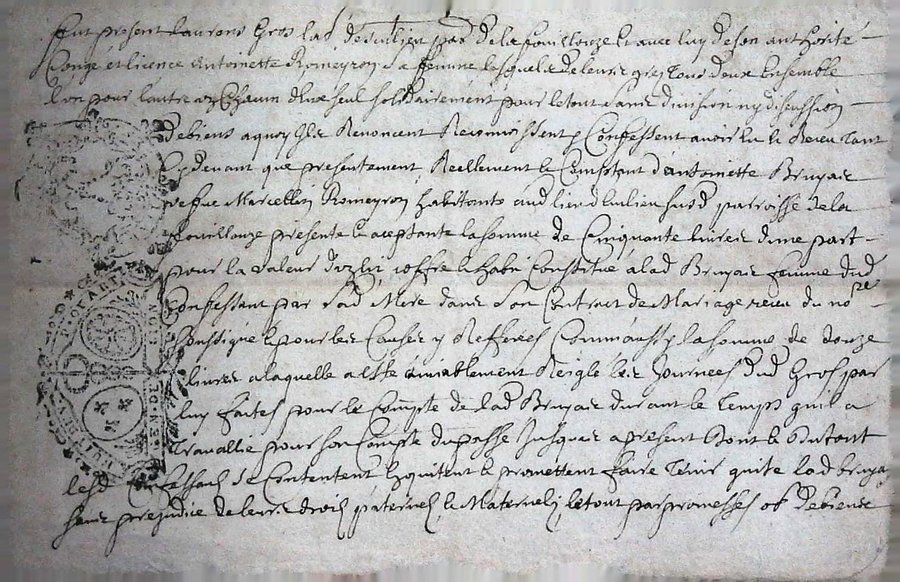 feut present Laurens Gros lab de lulieu par de la fouillouze et avec luy de son authorité
Congé et licence Antoinette Romeyron sa femme lesquels de leurs grés tous deux Ensemble
lun pour lautre un Chacun deux seul solidairement pour le tout sans division ny discussion
de biens a quoy Ils Renoncent Recognoissent Confessent avoir Eu et Receu tant
Cy devant que presentement Reellement et Comptant d'Antoinette Bruyas
vefue Marcellin Romeyron habitante aud lieu d lulieu susd parroisse de la
fouillouze presente et aceptante la somme de Cinquante livres dune part
pour la valeur coffre et habi Constitué a lad Bruyas femme dud
Confessant par lad Mere dans son Contract de Mariage receu du no.re
soussigné et pour les Causes y Refferées la somme de douze
livres a laquelle a esté amiablement Reiglé les Journees dud Gros par
luy faites pour le Compte de lad Bruyas durant le temps quil a
travallie pour son Compte du passé Jusques a present dont et du tout
lesd Confessans se Contentent Lquittent et promettent faire tenir quite lad bruyas
sans prejudice de leurs droits paternels et Maternels le tout par promesses ob de biens
NOTARI